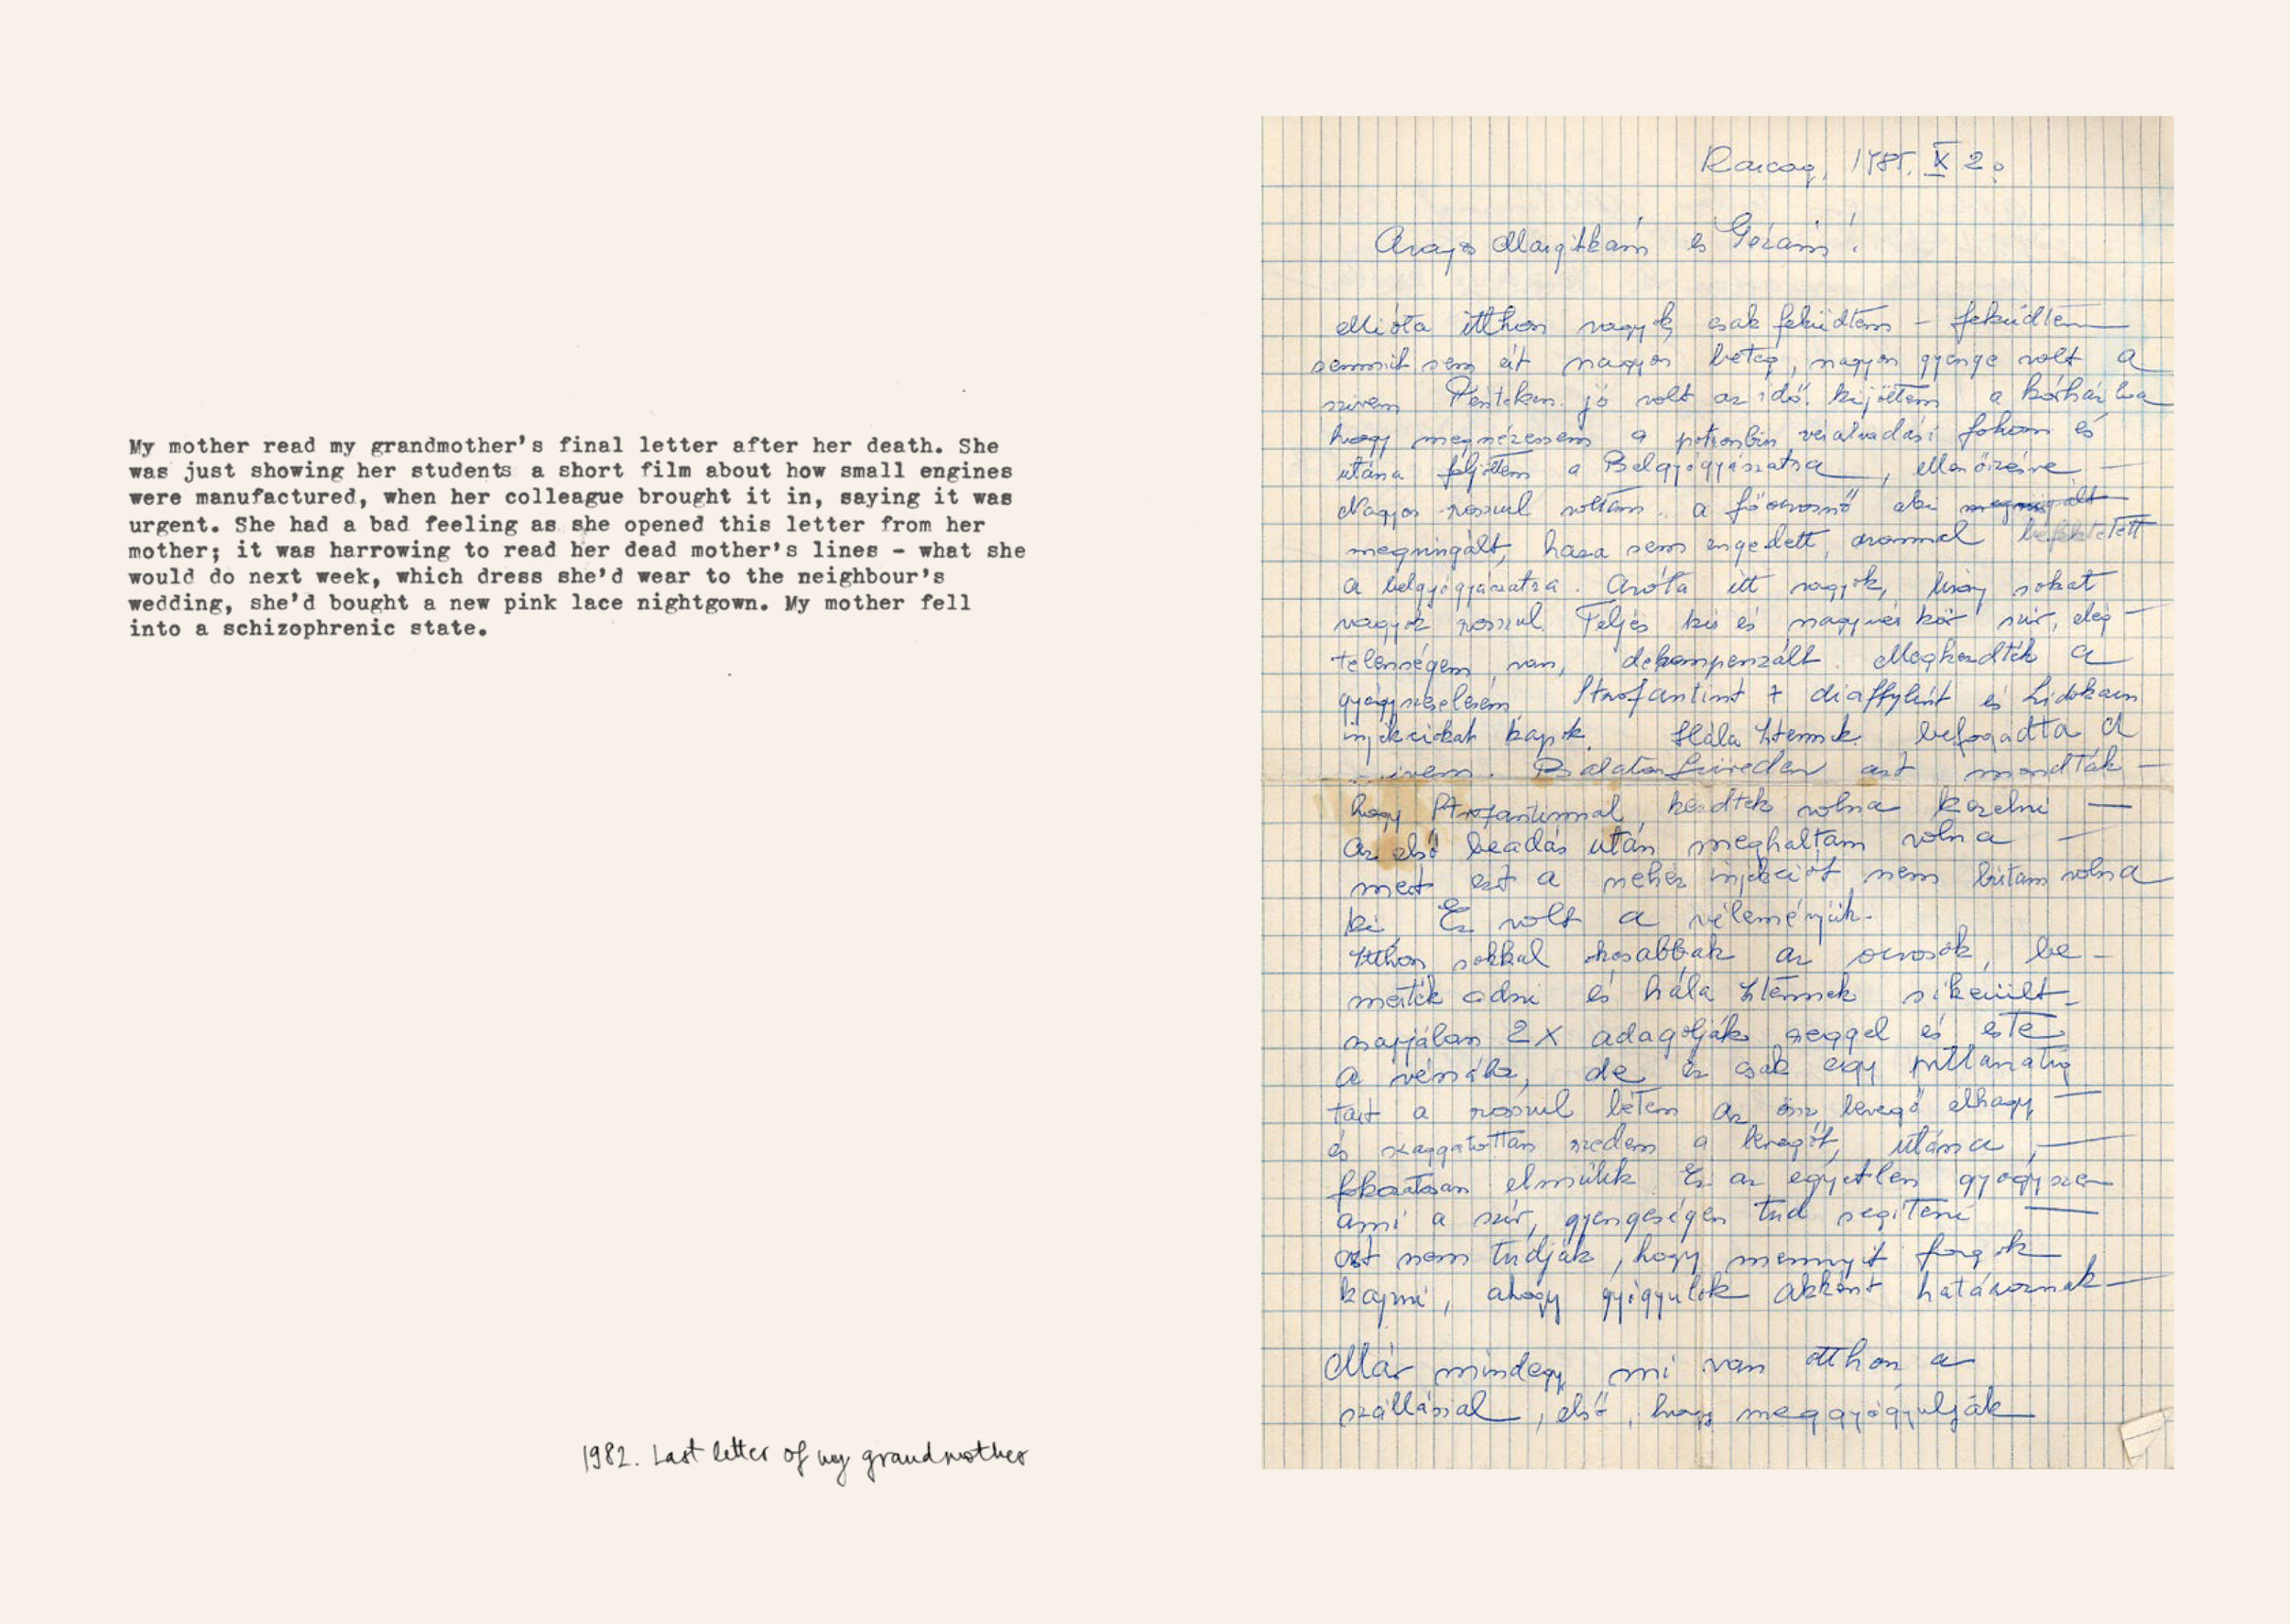 My mother read my grandmother's final letter after her death. She
was just showing her students a short film about how small engines
were manufactured, when her colleague brought it in, saying it was
urgent. She had a bad feeling as she opened this letter from her
mother; it was harrowing to read her dead mother's lines - what she
would do next week, which dress she'd wear to the neighbour's
wedding, she'd bought a new pink lace nightgown. My mother fell
into a schizophrenic state.
1982. Last letter of my grandmother
Karcag, X 2.
Margitkám és Gézám!
Mióta itthon vagyok csak feküdtem - feküdtem
semmit sem ért nagyon beteg, nagyon gyenge volt a
szívem Pénteken jó volt az idő. kijöttem a kórházba
hogy megnézessem a véralvadási fokom és
utána feljöttem a Belgyógyászatra, ellenőrzésre —
Nagyon rosszul voltam. a főorvosnő aki
megvizsgált, haza sem engedett, azonnal befektetett
a belgyógyászatra. Azóta itt vagyok, sokat
vagyok rosszul. Teljes kis és nagyvérkör szív, elég-
telenségem van, dekompenzált. Megkezdték a
Strofantint + diaffylint és Lidokain
injekciókat kapok. Hála Istennek befogadta a
szívem. Balatonfüreden azt mondták —
hogy Strofantinnal kezdtek volna kezelni —
az első beadás után meghaltam volna —
mert ezt a nehéz injekciót nem bírtam volna
ki. Ez volt a véleményük.
Itthon sokkal okosabbak az orvosok, be-
merték adni és hála Istennek sikerült-
naponta 2X adagolják reggel és este
a vénába, de ez csak egy pillanatig
tart a rosszul létem az levegő elhagy —
és szaggatottan szedem a levegőt, utána —
fokozatosan elmúlik. Ez az egyetlen
ami a szív gyengeségen tud segíteni —
azt nem tudják, hogy mennyit fogok
kapni, ahogy gyógyulok akként határoznak —
Már mindegy mi van otthon a
szállással, első, hogy meggyógyulják